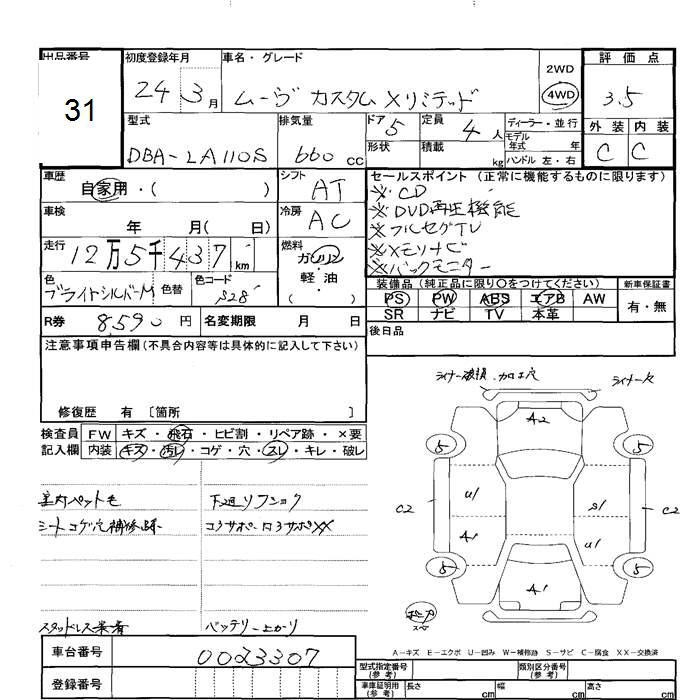 出品番号 初度登録年月 車名・グレード 2WD 評価点
31 24 3月 ムーヴ カスタム Xリミテッド 4WD 3.5
型式 排気量 ドア 5 定員 4人 ディーラー・並行 外装 内装
DBA-LA110S 660 cc 形状 積載 kg モデル年式 年 C C
ハンドル 左・右
車歴 自家用・( ) シフト AT セールスポイント (正常に機能するものに限ります)
※CD
車検 年 月( 日) 冷房 AC ※DVD再生機能
※フルセグTV
走行 12万5千437km 燃料 ガソリン ※メモリナビ
軽・油 ※バックモニター
色 ブライトシルバーM 色替 色コード S28 ( ) 装備品 (純正品に限り○をつけてください) 新車保証書
PS PW ABS エアB AW 有・無
R券 8590円 名変期限 月 日 SR ナビ TV 本革
注意事項申告欄(不具合内容等は具体的に記入して下さい) 後日品
修復歴 有 〔箇所 〕
検査員 FW キズ・飛石・ヒビ割・リペア跡・×要
記入欄 内装 キズ・汚レ・コゲ・穴・スレ・キレ・破レ
ライナー破損 ライナー欠
A2
5 5
C2 U1 S1 C2
A1 U1
5 5
A1
室内ペット毛 下廻リフショク
シートコゲ穴補修跡 コアサポート XX
スタッドレス業者 バッテリー上がり
A-キズ E-エクボ U-凹み W-補修跡 S-サビ C-腐食 XX-交換済
車台番号 0023307 型式指定番号(参考) 類別区分番号(参考)
登録番号 車庫証明用(参考) 長さ cm 幅 cm 高さ cm